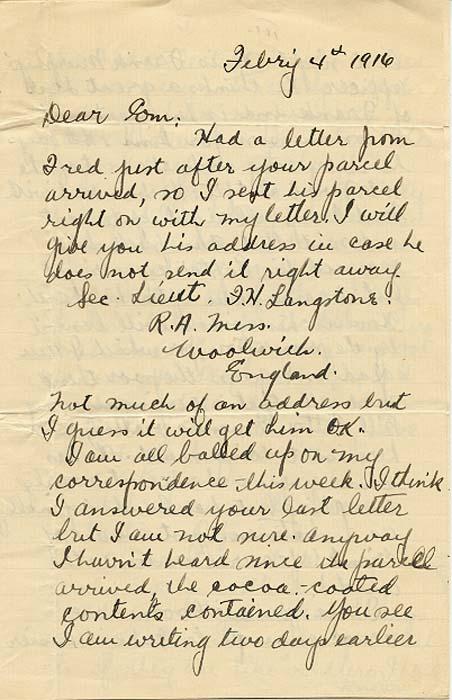 Febry 4th 1916
Dear Tom;
Had a letter from
Fred just after your parcel
arrived, so I sent his parcel
right on with my letter. I will
give you his address in case he
does not send it right away.
Sec. Lieut. F.H. Langstone.
R.A. Mess.
Woolwich.
England.
Not much of an address but
I guess it will get him OK.
I am all balled up on my
correspondence this week. I think
I answered your last letter
but I am not sure. anyway
I havn't heard since the parcel
arrived, the cocoa-coated
contents contained. You see
I am writing two days earlier